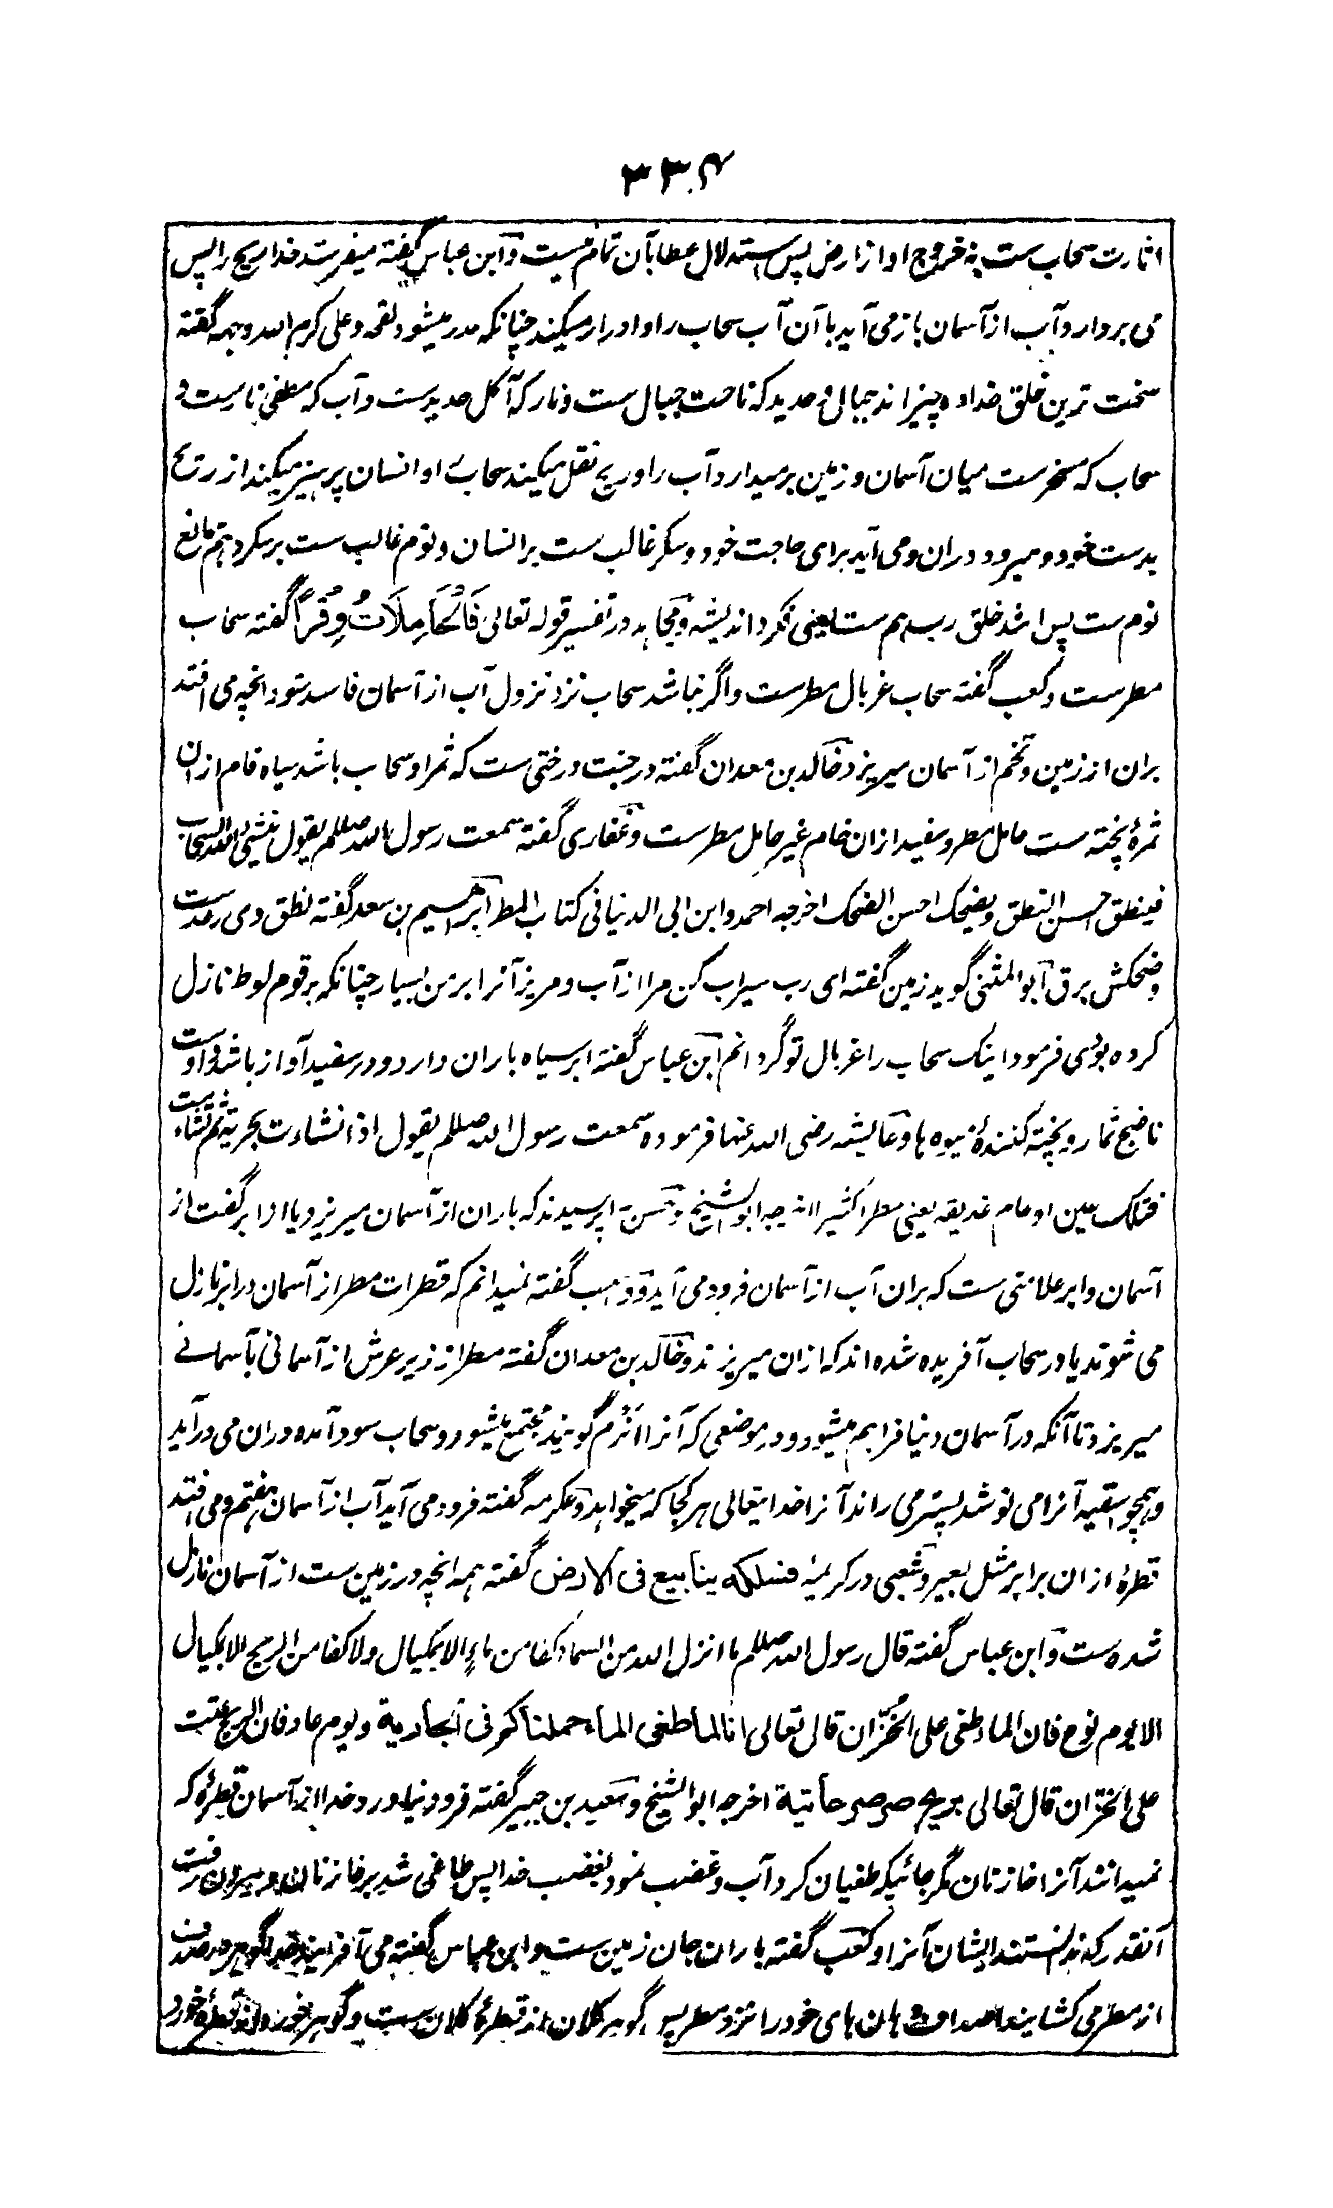 ۳۳۴
اثارت سحاب ست نه خروج او از ارض پس استدلال عطا بآن تمام نیست و ابن عباس گفته میفرستد خدا ریح را پس
می بردارد آب از آسمان باز می آید با آن آب سحاب را و ادرار میکند چنانکه مدر میشود لقحه و علی کرم الله وجهه گفته
سخت ترین خلق خدا ده چیز اند جبال و حدید که ناحت جبال ست و نار که آکل حدید ست و آب که مطفی نارست و
سحاب که مسخر ست میان آسمان و زمین برمیدارد آب را و ریح نقل میکند سحاب او انسان پرهیز میکند از ریح
بدست خود و میرود دران و می آید برای حاجت خود و سکر غالب ست بر انسان و نوم غالب ست بر سکر و هم مانع
نوم ست پس اشد خلق رب هم ست یعنی فکر و اندیشه و مجاهد در تفسیر قوله تعالی فَالْحَامِلَاتِ وِقْرًا گفته سحاب
مطرست و کعب گفته سحاب غربال مطرست و اگر نباشد سحاب نزد نزول آب از آسمان فاسد شود انچه می افتد
بران از زمین و تخم از آسمان میریزد و خالد بن معدان گفته در جنت درختی ست که ثمر او سحاب باشد سیاه فام ازان
ثمرۀ پخته ست حامل مطر و سفید ازان خام غیر حامل مطرست و غفاری گفته سمعت رسول الله صللم یقول ینشئ الله السحاب
فینطق احسن النطق ویضحک احسن الضحک اخرجه احمد وابن ابی الدنیا فی کتاب المطر ابراهیم بن سعد گفته نطق وی رعدست
و ضحکش برق ابو المثنی گوید زمین گفته ای رب سیراب کن مرا از آب و مریز آنرا بر من بسیار چنانکه بر قوم لوط نازل
کرده بودی فرمود اینک سحاب را غربال تو گردانم ابن عباس گفته ابر سیاه باران دارد و در سفید آواز باشد و اوست
ناضج ثمار و پخته کنندۀ میوه ها و عایشه رضی الله عنها فرموده سمعت رسول الله صللم یقول اذا نشاءت بحریة ثم تشاءمت
فتلک عین او عام غدیقه یعنی مطرا کثیرا اخرجه ابو الشیخ و حسن را پرسیدند که باران از آسمان میریزد یا از ابر گفت از
آسمان و ابر علامتی ست که بران آب از آسمان فرود می آید و وهب گفته نمیدانم که قطرات مطر از آسمان در ابر نازل
می شوند یا در سحاب آفریده شده اند که ازان میریزند و خالد بن معدان گفته مطر از زیر عرش از آسمانی بآسمانے
میریزد تا آنکه در آسمان دنیا فراهم میشود و در موضعی که آنرا انزم گویند مجتمع میشود و سحاب سود آمده دران می درآید
و همچو اسقیه آنرا می نوشد پستر می راند آنرا خدایتعالی هر کجا که میخواهد و عکرمه گفته فرود می آید آب از آسمان هفتم و می افتد
قطرۀ ازان برابر مثل بعیر و شعبی در کریمۀ فسلکه ینابیع فی الارض گفته همه انچه در زمین ست از آسمان نازل
شده ست و ابن عباس گفته قال رسول الله صللم ما انزل الله من السماء کفا من ماء الا بمکیال ولا کفا من الریح الا بمکیال
الا یوم نوح فان الماء طغی علی الخُزّان قال تعالی انا لما طغی الماء حملناکم فی الجاریة ویوم عاد فان الریح عتت
علی الخزّان قال تعالی بریح صرصر عاتیة اخرجه ابو الشیخ و سعید بن جبیر گفته فرود نیاورد خدا از آسمان قطرۀ که
نمیدانند آنرا خازنان مگر جائیکه طغیان کرد آب و غضب نمود بغضب خدا پس طاغی شد بر خازنان و بیرون رفت
آنقدر که ندانستند ایشان آنرا و کعب گفته باران جان زمین ست و ابن عباس گفته می آفریند خدا گوهر در صدف
از مطر می کشایند اصداف دهان های خود را نزد مطر پس گوهر کلان از قطرۀ کلان ست و گوهر خورد از قطرۀ خورد